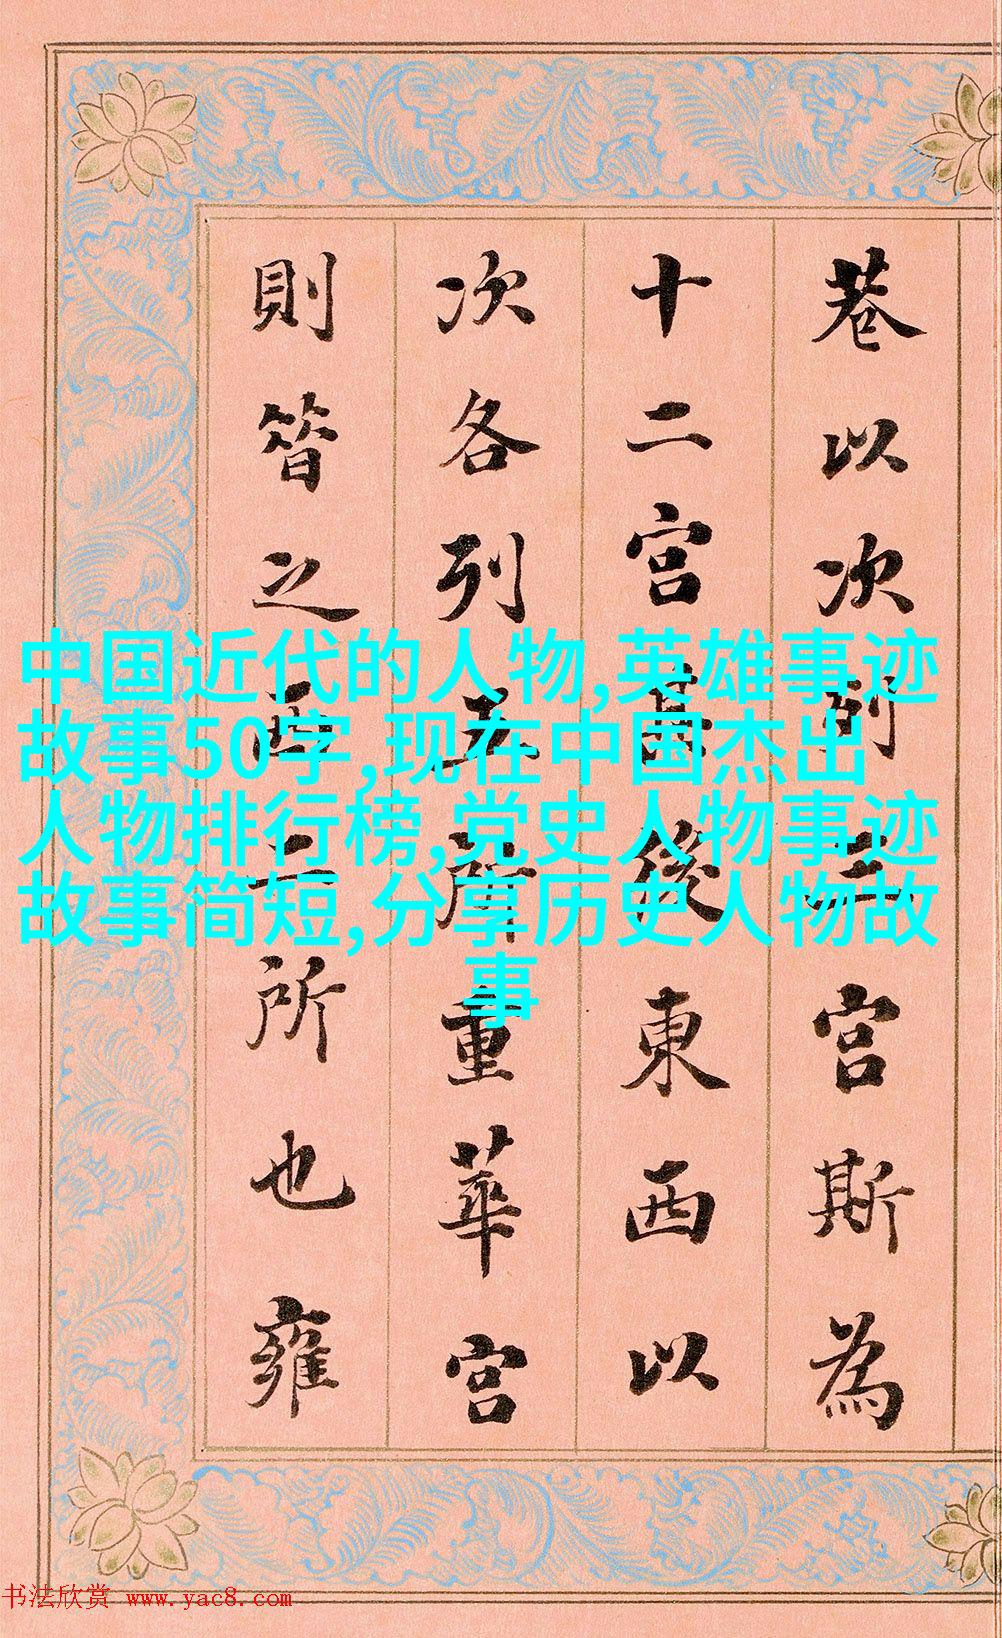 巷以次列三宮斯為
十二宮其後東西以
次各列五所重華宮
則昔之西二所也雍
中国近代的人物,英雄事迹
故事50字,现在中国杰出
人物排行榜,党史人物事迹
故事简短,分享历史人物故
事
书法欣赏 www.yac8.com